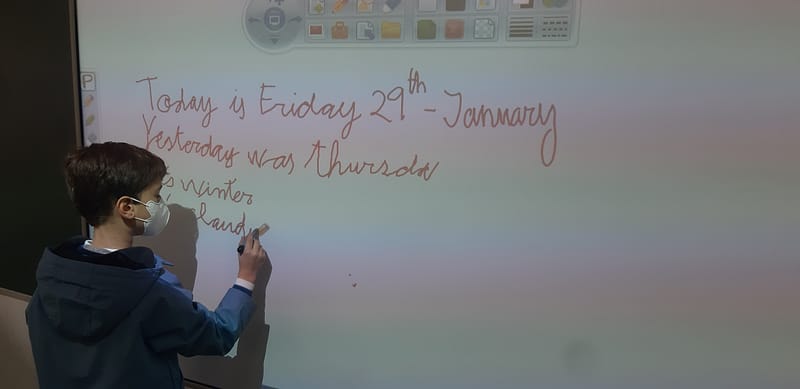 P
Today is Friday 29th - January
Yesterday was thursda
s winter